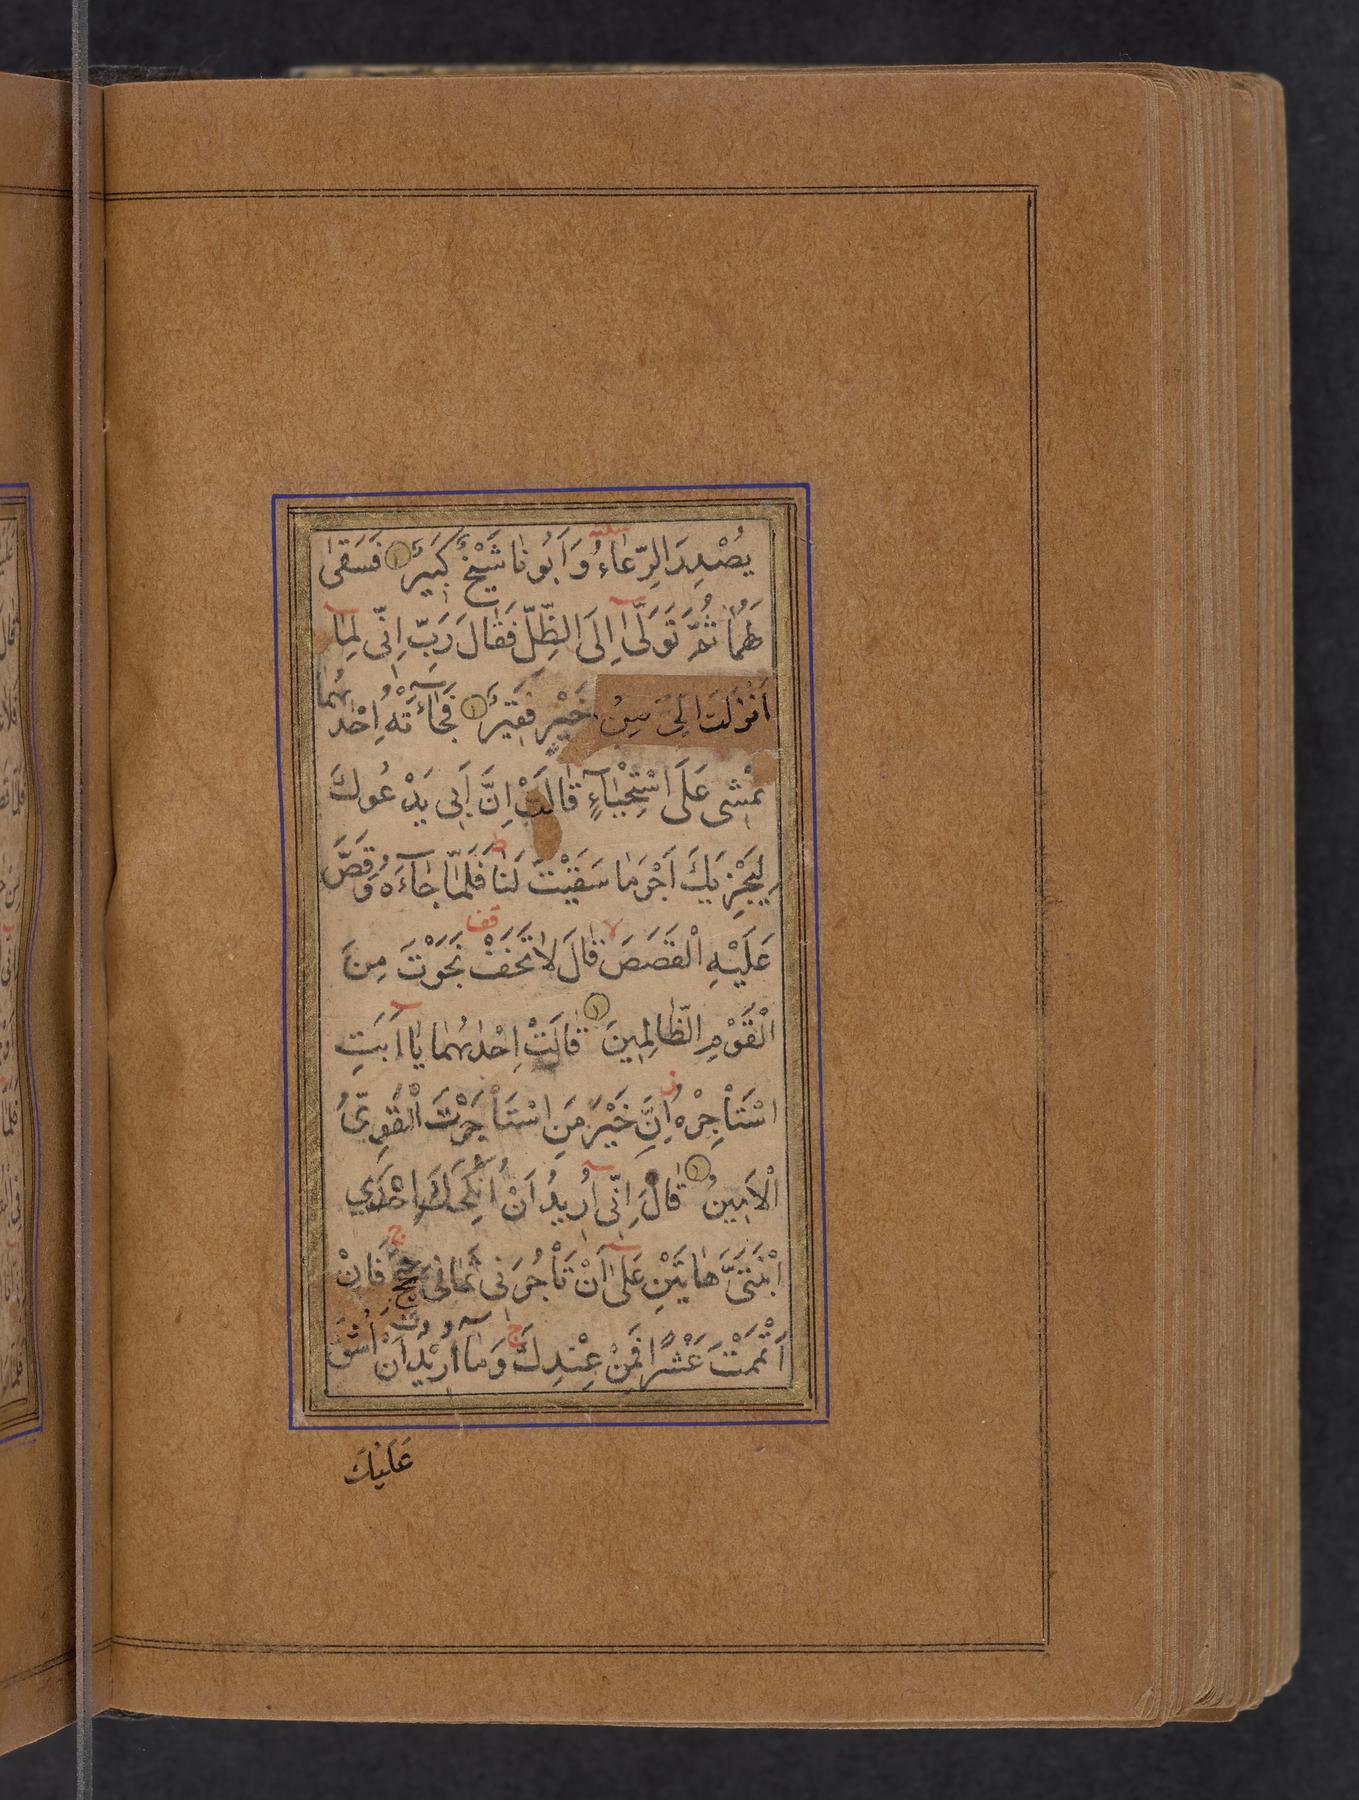 يُصْدِرَ الرِّعَاءُ وَاَبُونَا شَيْخٌ كَبِيرٌ فَسَقٰى
لَهُمَا ثُمَّ تَوَلّٰى اِلَى الظِّلِّ فَقَالَ رَبِّ اِنّٖى لِمَا
اَنْزَلْتَ اِلَىَّ مِنْ خَيْرٍ فَقٖيرٌ فَجَاۤءَتْهُ اِحْدٰيهُمَا
تَمْشٖى عَلَى اسْتِحْيَاۤءٍ قَالَتْ اِنَّ اَبٖى يَدْعُوكَ
لِيَجْزِيَكَ اَجْرَ مَا سَقَيْتَ لَنَا فَلَمَّا جَاۤءَهُ وَقَصَّ
عَلَيْهِ الْقَصَصَ قَالَ لَا تَخَفْ نَجَوْتَ مِنَ
الْقَوْمِ الظَّالِمٖينَ قَالَتْ اِحْدٰيهُمَا يَا اَبَتِ
اسْتَأْجِرْهُ اِنَّ خَيْرَ مَنِ اسْتَأْجَرْتَ الْقَوِىُّ
الْاَمٖينُ قَالَ اِنّٖى اُرٖيدُ اَنْ اُنْكِحَكَ اِحْدَى
ابْنَتَىَّ هَاتَيْنِ عَلٰى اَنْ تَأْجُرَنٖى ثَمَانِىَ حِجَجٍ فَاِنْ
اَتْمَمْتَ عَشْرًا فَمِنْ عِنْدِكَ وَمَاۤ اُرٖيدُ اَنْ اَشُقَّ
عَلَيْكَ